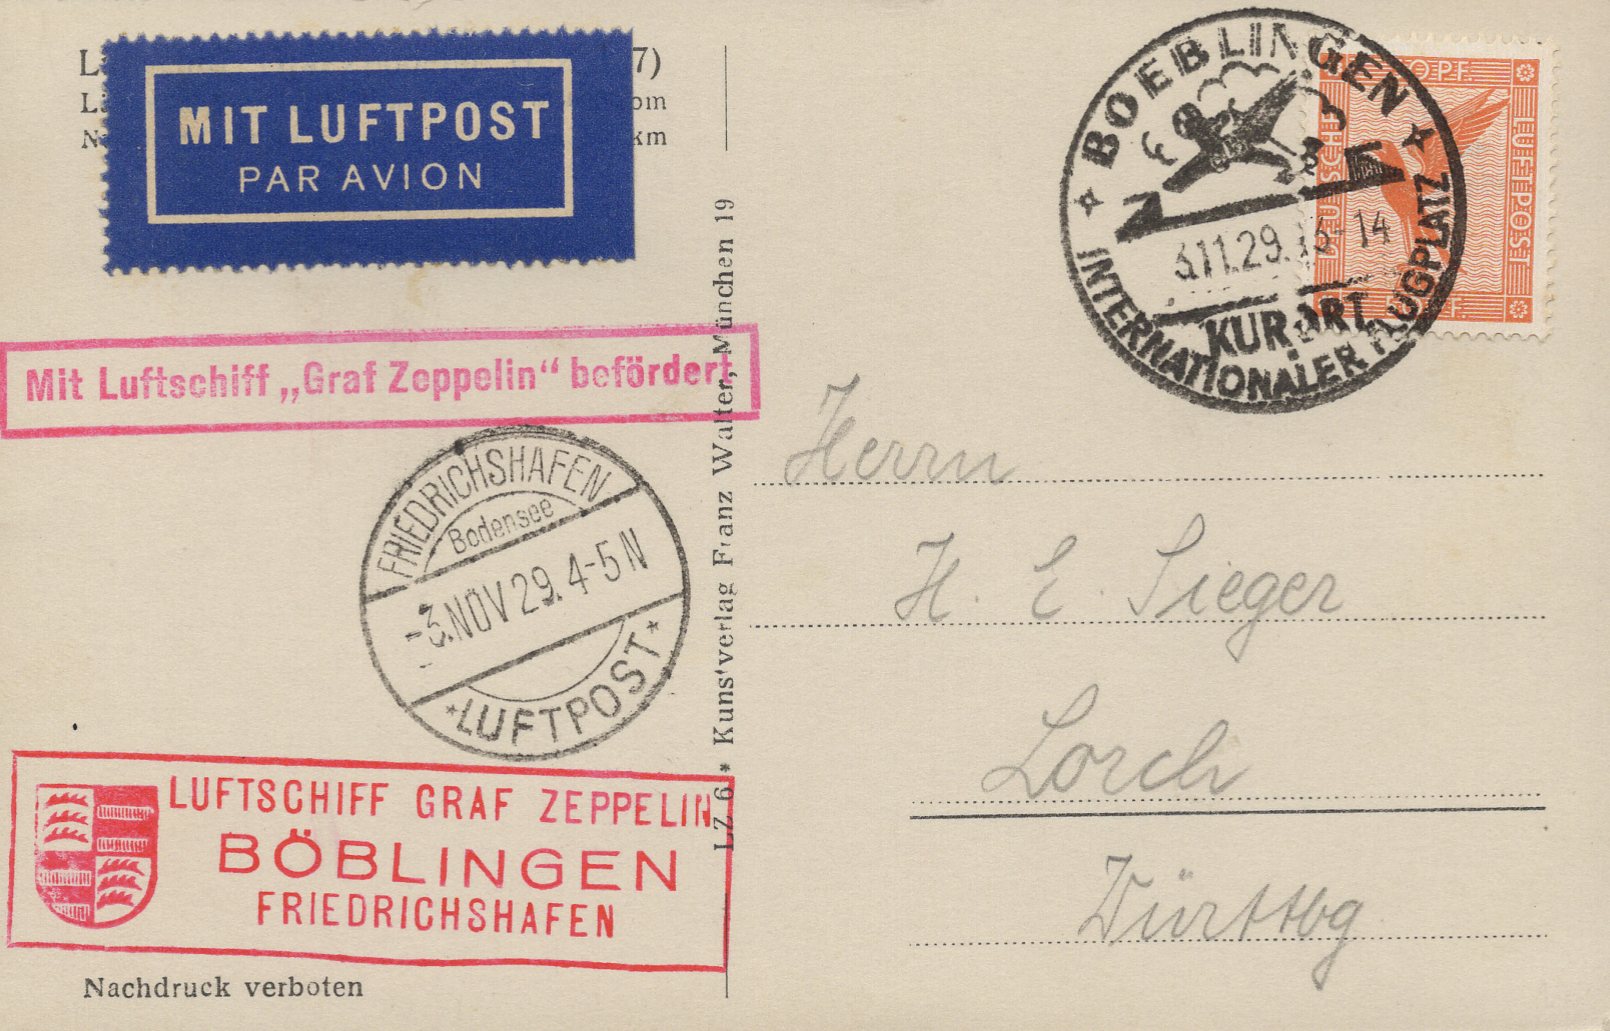 7)
om
km
MIT LUFTPOST
PAR AVION
BOEBLINGEN
3.11.29. 13-14
KURORT
INTERNATIONALER FLUGPLATZ
LUFTPOST
Mit Luftschiff „Graf Zeppelin“ befördert
FRIEDRICHSHAFEN
Bodensee
-3.NOV 29. 4-5 N
*LUFTPOST*
LZ 6 * Kunstverlag Franz Walter, München 19
Herrn
H. E. Sieger
Lorch
Württbg
LUFTSCHIFF GRAF ZEPPELIN
BÖBLINGEN
FRIEDRICHSHAFEN
Nachdruck verboten